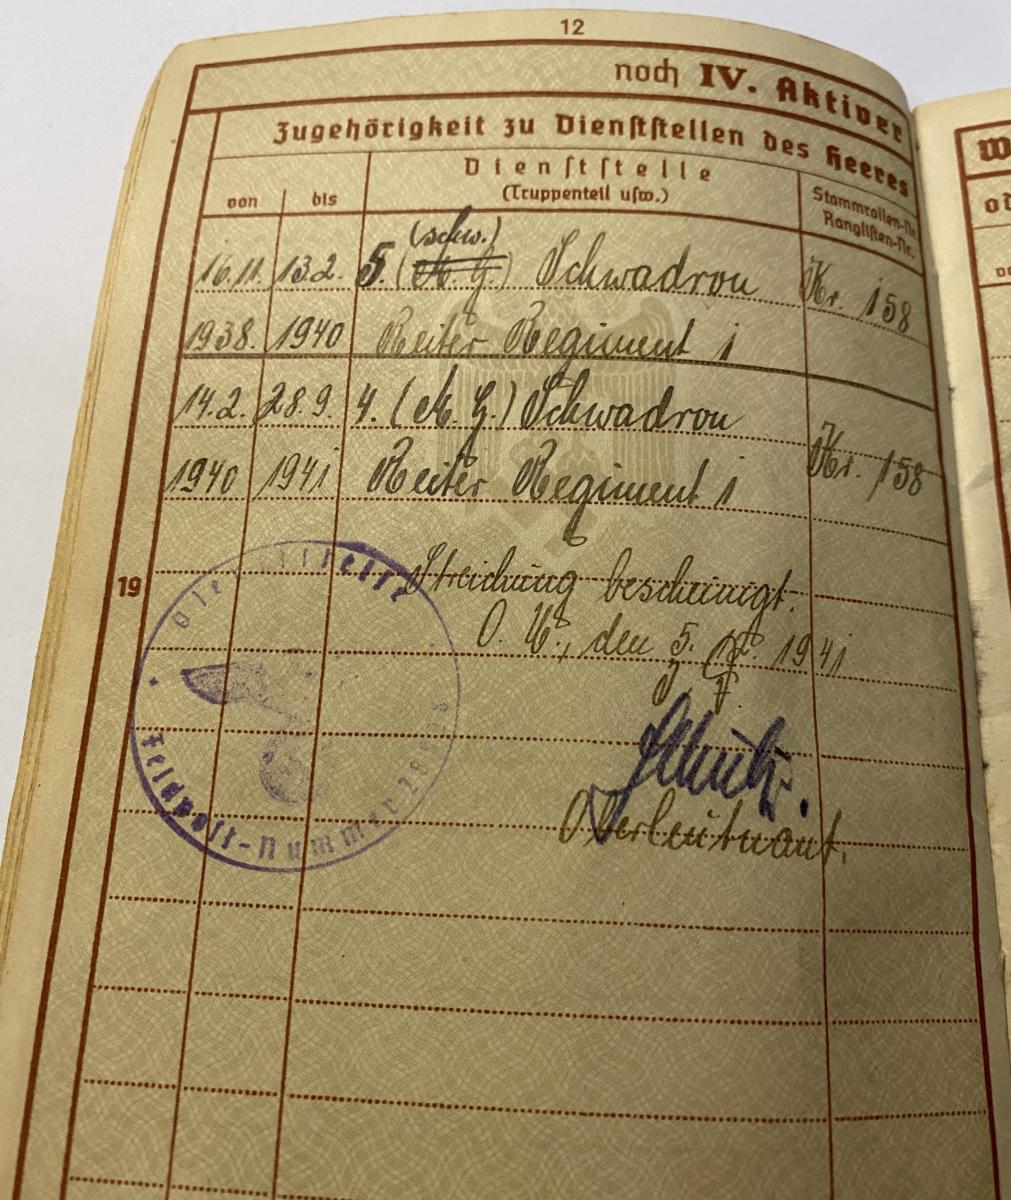 12
noch IV. Aktiver
Zugehörigkeit zu Dienststellen des Heeres
von
bis
Dienststelle
(Truppenteil usw.)
Stammrollen-Nr.
Ranglisten-Nr.
(schw.)
16.11. 13.2. 5. (M. G.) Schwadron Nr. 158
1938. 1940 Reiter Regiment 1
14.2. 28.9. 4. (M. G.) Schwadron Nr. 158
1940 1941 Reiter Regiment 1
Streichung bescheinigt.
19
O. U., den 5. 1941
Oberleutnant.
Dienststelle
Feldpost-Nummer
W